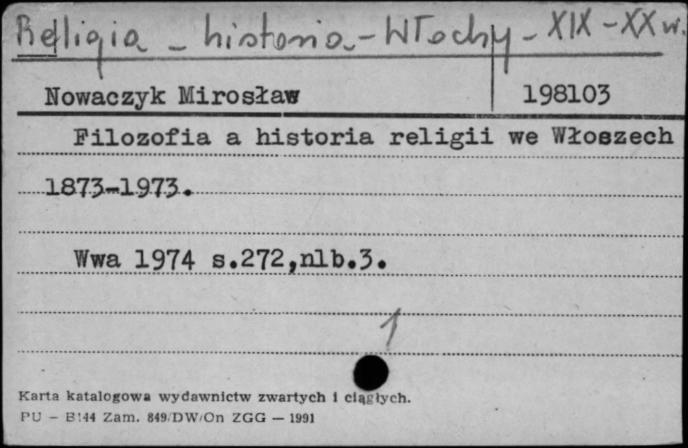 Religia - historia - Włochy - XIX - XX w.
Nowaczyk Mirosław 198103
Filozofia a historia religii we Włoszech
1873-1973.
Wwa 1974 s.272,nlb.3.
1
Karta katalogowa wydawnictw zwartych i ciągłych.
PU - B144 Zam. 849/DW/On ZGG — 1991